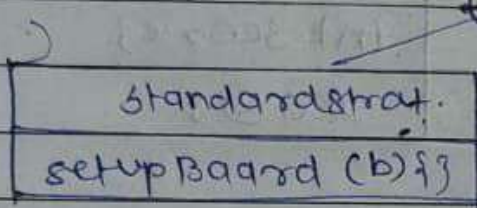 Standardstrat.
setUpBoard (b){}